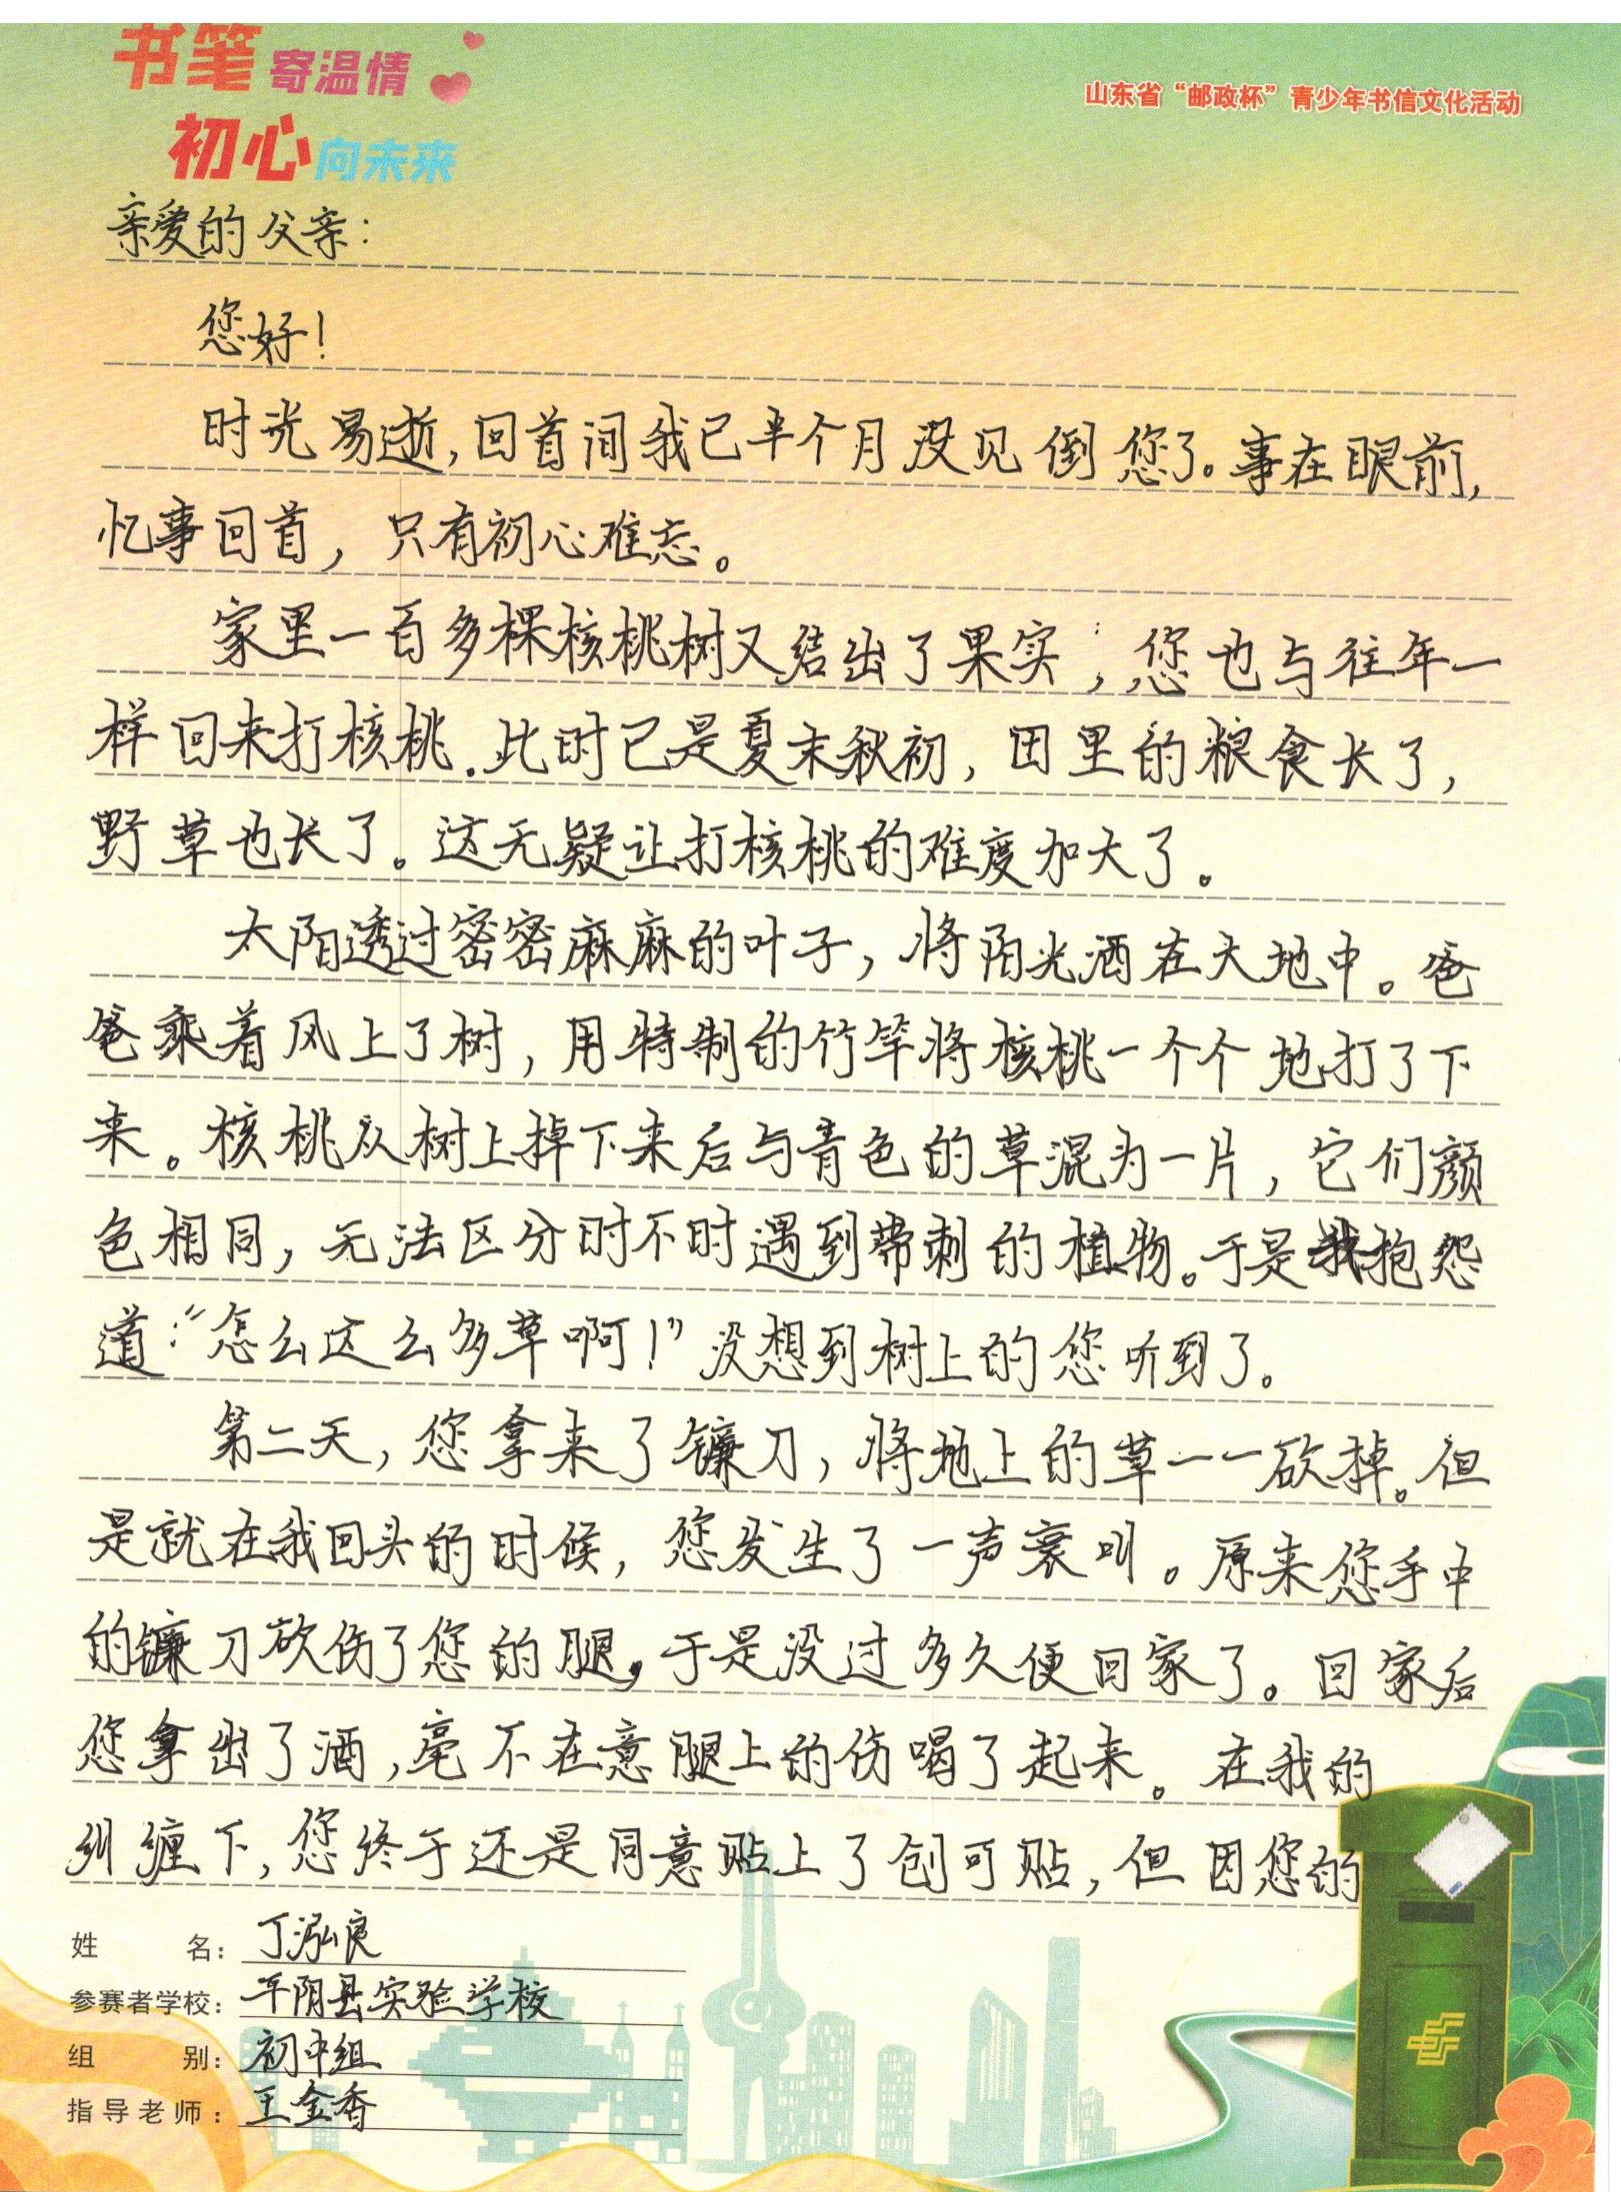 书笔寄温情
初心向未来
山东省“邮政杯”青少年书信文化活动
亲爱的父亲：
您好！
时光易逝，回首间我已半个月没见倒您了。事在眼前，
忆事回首，只有初心难忘。
家里一百多棵核桃树又结出了果实；您也与往年一
样回来打核桃.此时已是夏末秋初，田里的粮食长了，
野草也长了。这无疑让打核桃的难度加大了。
太阳透过密密麻麻的叶子，将阳光洒在大地中。爸
爸乘着风上了树，用特制的竹竿将核桃一个个地打了下
来。核桃从树上掉下来后与青色的草混为一片，它们颜
色相同，无法区分时不时遇到带刺的植物。于是我抱怨
道：“怎么这么多草啊！”没想到树上的您听到了。
第二天，您拿来了镰刀，将地上的草一一砍掉。但
是就在我回头的时候，您发生了一声哀叫。原来您手中
的镰刀砍伤了您的腿，于是没过多久便回家了。回家后
您拿出了酒，毫不在意腿上的伤喝了起来。在我的
纠缠下，您终于还是同意贴上了创可贴，但因您的
姓名：丁泓良
参赛者学校：平阴县实验学校
组别：初中组
指导老师：王金香